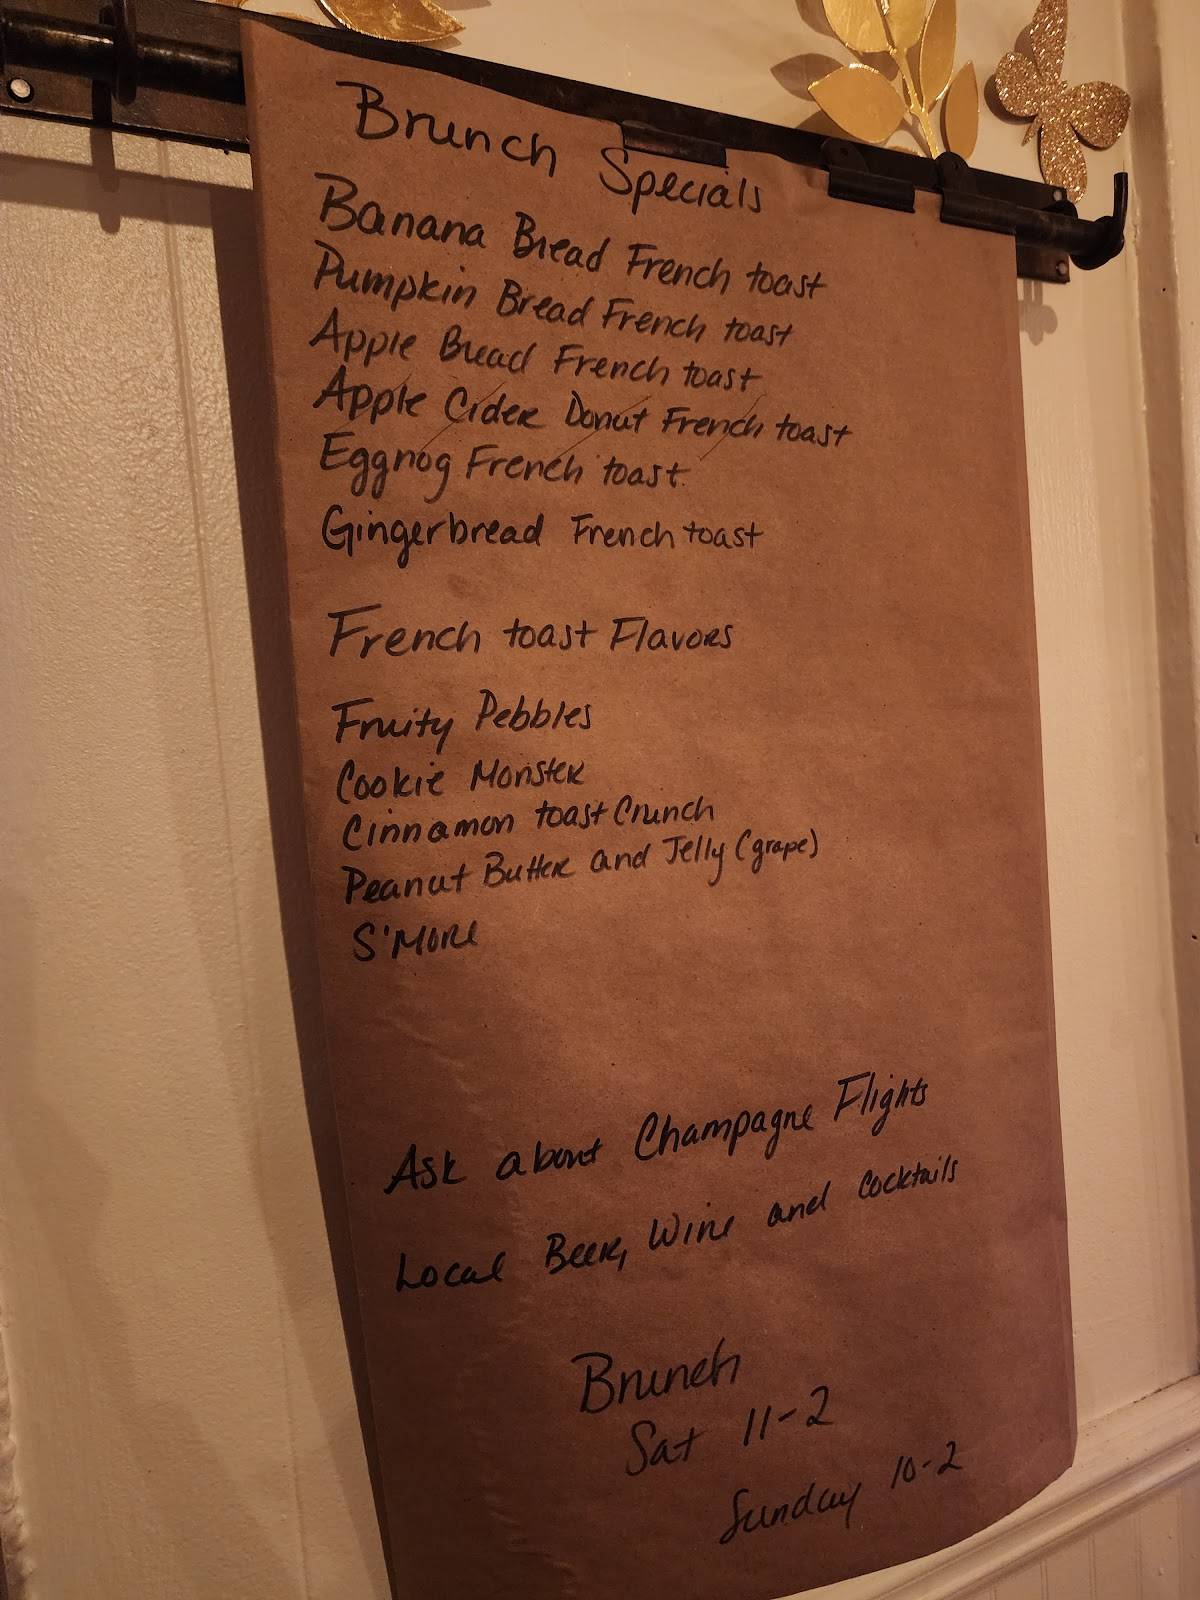 Brunch Specials
Banana Bread French toast
Pumpkin Bread French toast
Apple Bread French toast
Apple Cider Donut French toast
Eggnog French toast.
Gingerbread French toast
French toast Flavors
Fruity Pebbles
Cookie Monster
Cinnamon toast Crunch
Peanut Butter and Jelly (grape)
S'MORE
Ask about Champagne Flights
Local Beer, Wine and Cocktails
Brunch
Sat 11-2
Sunday 10-2